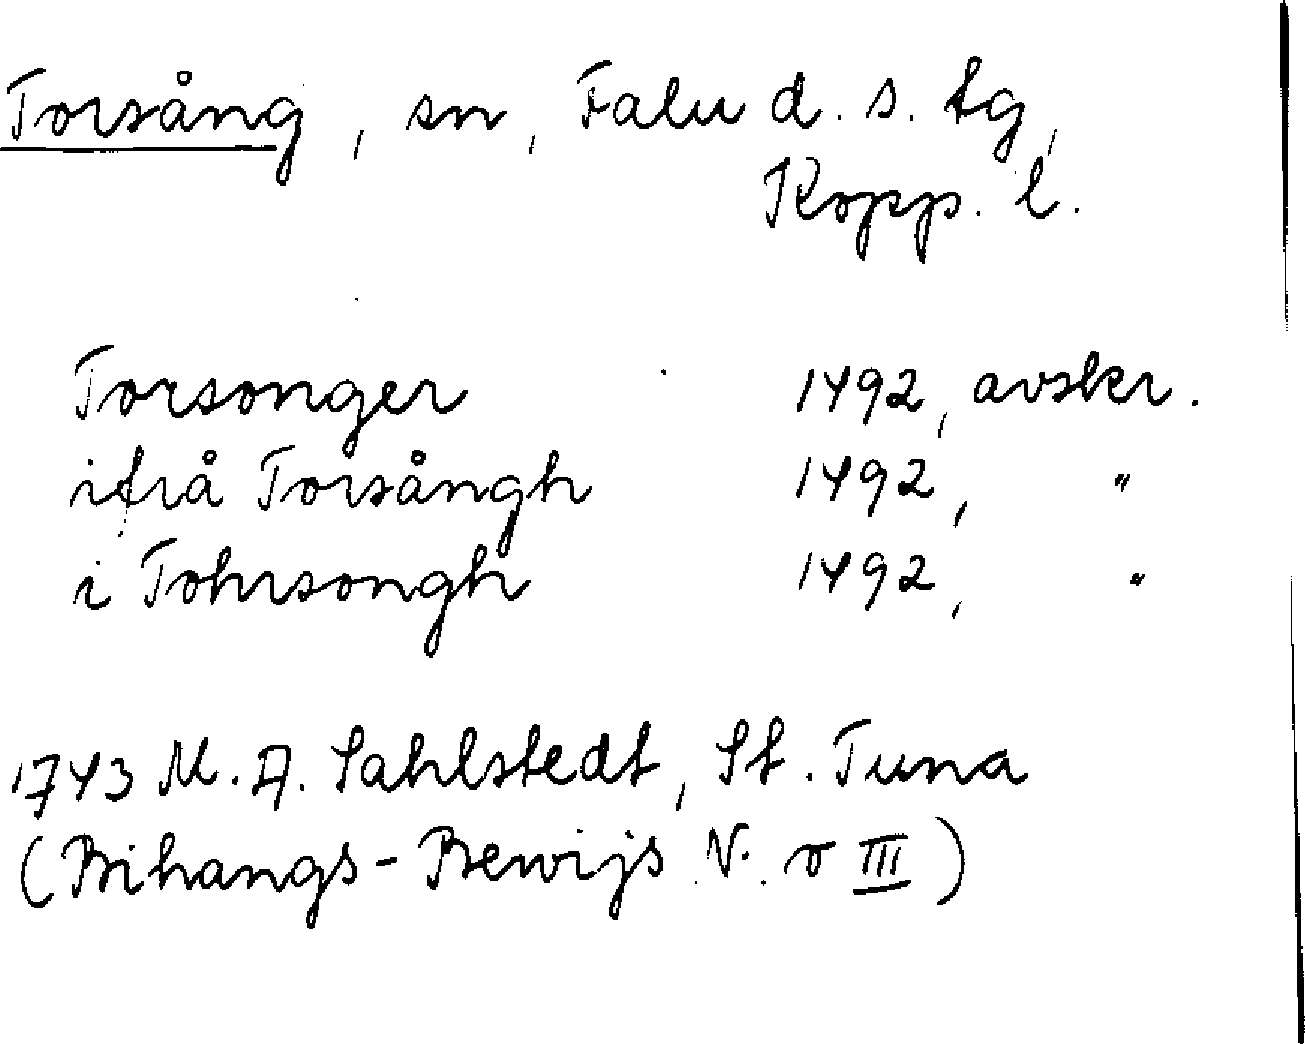 Torsång, sn, Falu d. s. tg,
Kopp. l.
Torsonger 1492, avskr.
ifrå Torsångh 1492, "
i Tohrsongh 1492, "
1743 M. A. Sahlstedt, St. Tuna
(Bihangs-Bewijs N. o III)